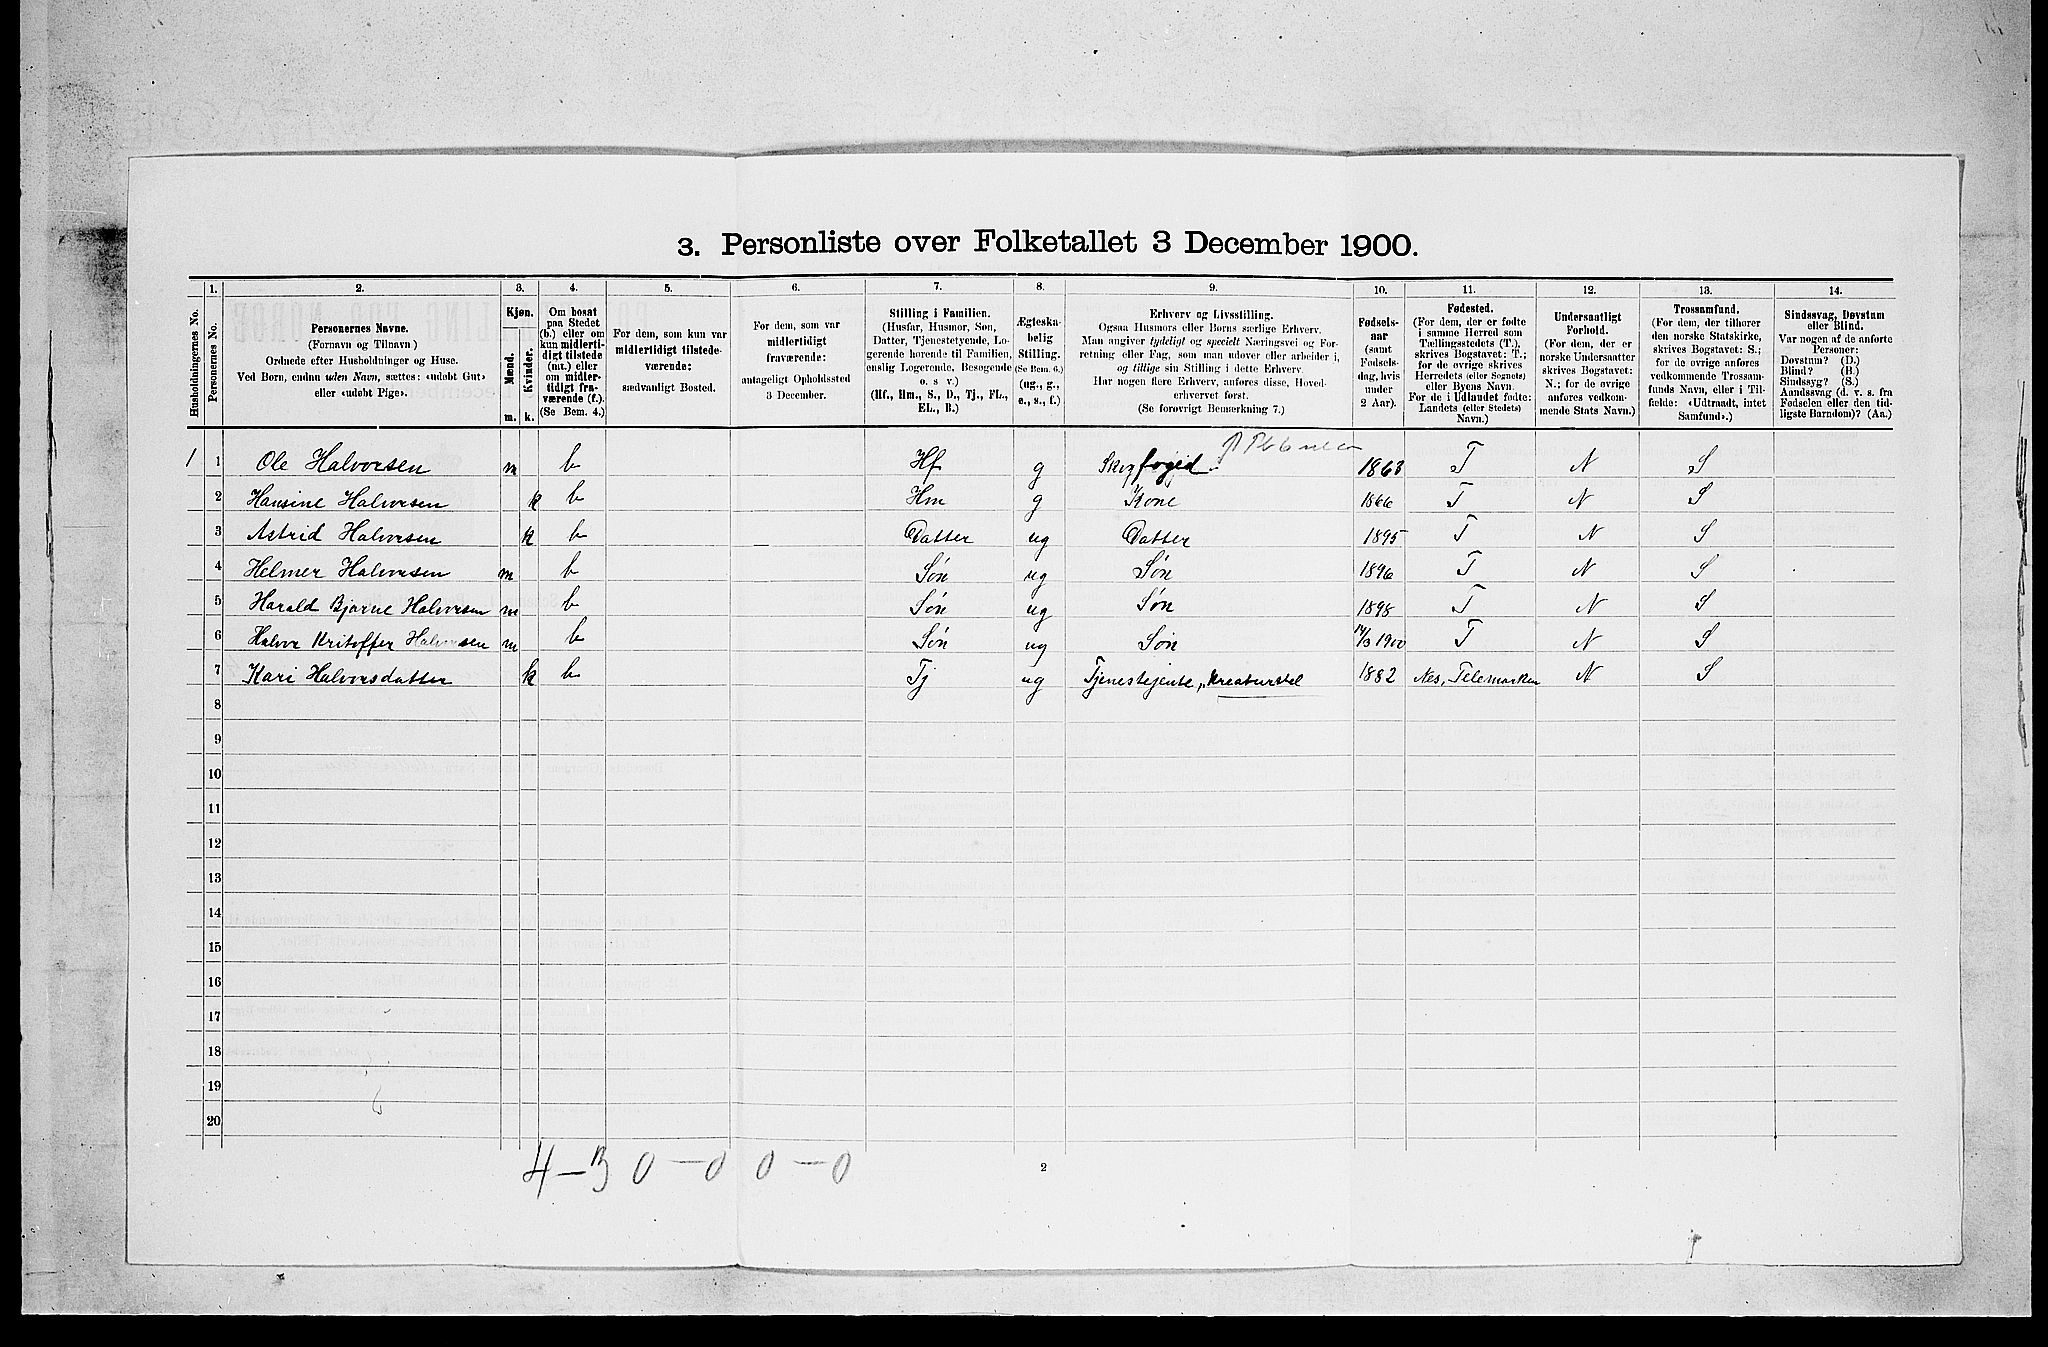 3. Personliste over Folketallet 3 December 1900.
Husholdningernes No.
1.
Personernes No.
2.
Personernes Navne.
(Fornavn og Tilnavn)
Ordnede efter Husholdninger og Huse.
Ved Børn, endnu uden Navn, sættes: «udøbt Gut»
eller «udøbt Pige».
3.
Kjøn.
Mænd.
Kvinder.
m. k.
4.
Om bosat
paa Stedet
(b.) eller om
kun midlerti-
digt tilstede
(mt.) eller
om midler-
tidigt fra-
værende (f.).
(Se Bem. 4.)
5.
For dem, som kun var
midlertidigt tilstede-
værende:
sædvanligt Bosted.
6.
For dem, som var
midlertidigt
fraværende:
antageligt Opholdssted
3 December.
7.
Stilling i Familien.
(Husfar, Husmor, Søn,
Datter, Tjenestetyende, Lo-
gerende hørende til Familien,
enslig Logerende, Besøgende
o. s v.)
(Hf., Hm., S., D., Tj., FL.,
EL., B.)
8.
Ægteska-
belig
Stilling.
(Se Bem. 6.)
(ug., g.,
e., s., f.)
9.
Erhverv og Livsstilling.
Ogsaa Husmors eller Børns særlige Erhverv.
Man angiver tydeligt og specielt Næringsvei og For-
retning eller Fag, som man udøver eller arbeider i,
og tillige sin Stilling i dette Erhverv.
Har nogen flere Erhverv, anføres disse, Hoved-
erhvervet først.
(Se forøvrigt Bemerkning 7.)
10.
Fødsels-
aar
(samt
Fødsels-
dag, hvis
under
2 Aar).
11.
Fødested.
(For dem, der er fødte
i samme Herred som
Tællingsstedets (T.),
skrives Bogstavet: T.;
for de øvrige skrives
Herredets (eller Sognets)
eller Byens Navn.
For de i Udlandet fødte:
Landets (eller Stedets)
Navn.)
12.
Undersaatligt
Forhold.
(For dem, der er
norske Undersaatter
skrives Bogstavet:
N.; for de øvrige
anføres vedkom-
mende Stats Navn.)
13.
Trossamfund.
(For dem, der tilhører
den norske Statskirke,
skrives Bogstavet: S.;
for de øvrige anføres
vedkommende Trossam-
funds Navn, eller i Til-
fælde: «Udtraadt, intet
Samfund».)
14.
Sindssvag, Døvstum
eller Blind.
Var nogen af de anførte
Personer:
Døvstum? (D.)
Blind? (B.)
Sindssyg? (S.)
Aandssvag (d. v. s. fra
Fødselen eller den tid-
ligste Barndom)? (Aa.)
1 1 Ole Halvorsen m b Hf g Skogfoged 1863 T N S
2 Hansine Halvorsen k b Hm g Kone 1866 T N S
3 Astrid Halvorsen k b — Datter ug Datter 1895 T N S
4 Helmer Halvorsen m b Søn ug Søn 1896 T N S
5 Harald Bjarne Halvorsen m b Søn ug Søn 1898 T N S
6 Halvor Kristoffer Halvorsen m b Søn ug Søn 14/3 1900 T N S
7 Kari Halvorsdatter k b Tj ug Tjenestejente, Kreaturstel 1882 Nes, Telemarken N S
8
9
10
11
12
13
14
15
16
17
18
19
20
4 – 3 0 – 0 0 – 0
2